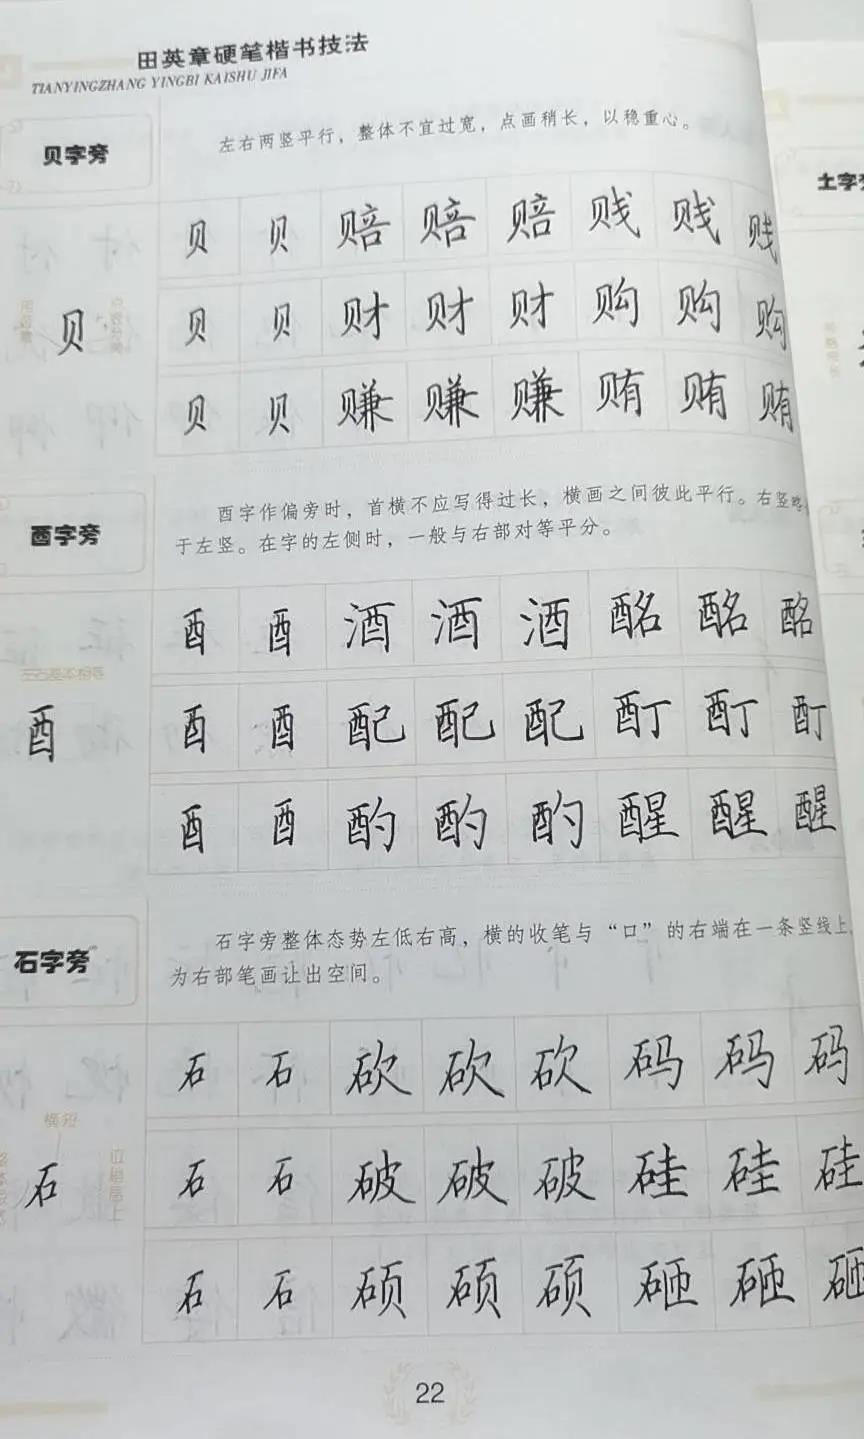 田英章硬笔楷书技法
TIANYINGZHANG YINGBI KAISHU JIFA
贝字旁
左右两竖平行，整体不宜过宽，点画稍长，以稳重心。
贝 贝 赔 赔 赔 贱 贱 贱
贝
贝 贝 财 财 财 购 购 购
贝 贝 赚 赚 赚 贿 贿 贿
酉字旁
酉字作偏旁时，首横不应写得过长，横画之间彼此平行。右竖略
于左竖。在字的左侧时，一般与右部对等平分。
酉 酉 酒 酒 酒 酩 酩 酩
左右基本相等
酉
酉 酉 配 配 配 酊 酊 酊
酉 酉 酌 酌 酌 醒 醒 醒
石字旁
石字旁整体态势左低右高，横的收笔与“口”的右端在一条竖线上，
为右部笔画让出空间。
石 石 砍 砍 砍 码 码 码
横短
石
石 石 破 破 破 硅 硅 硅
石 石 硕 硕 硕 砸 砸 砸
22
土字旁